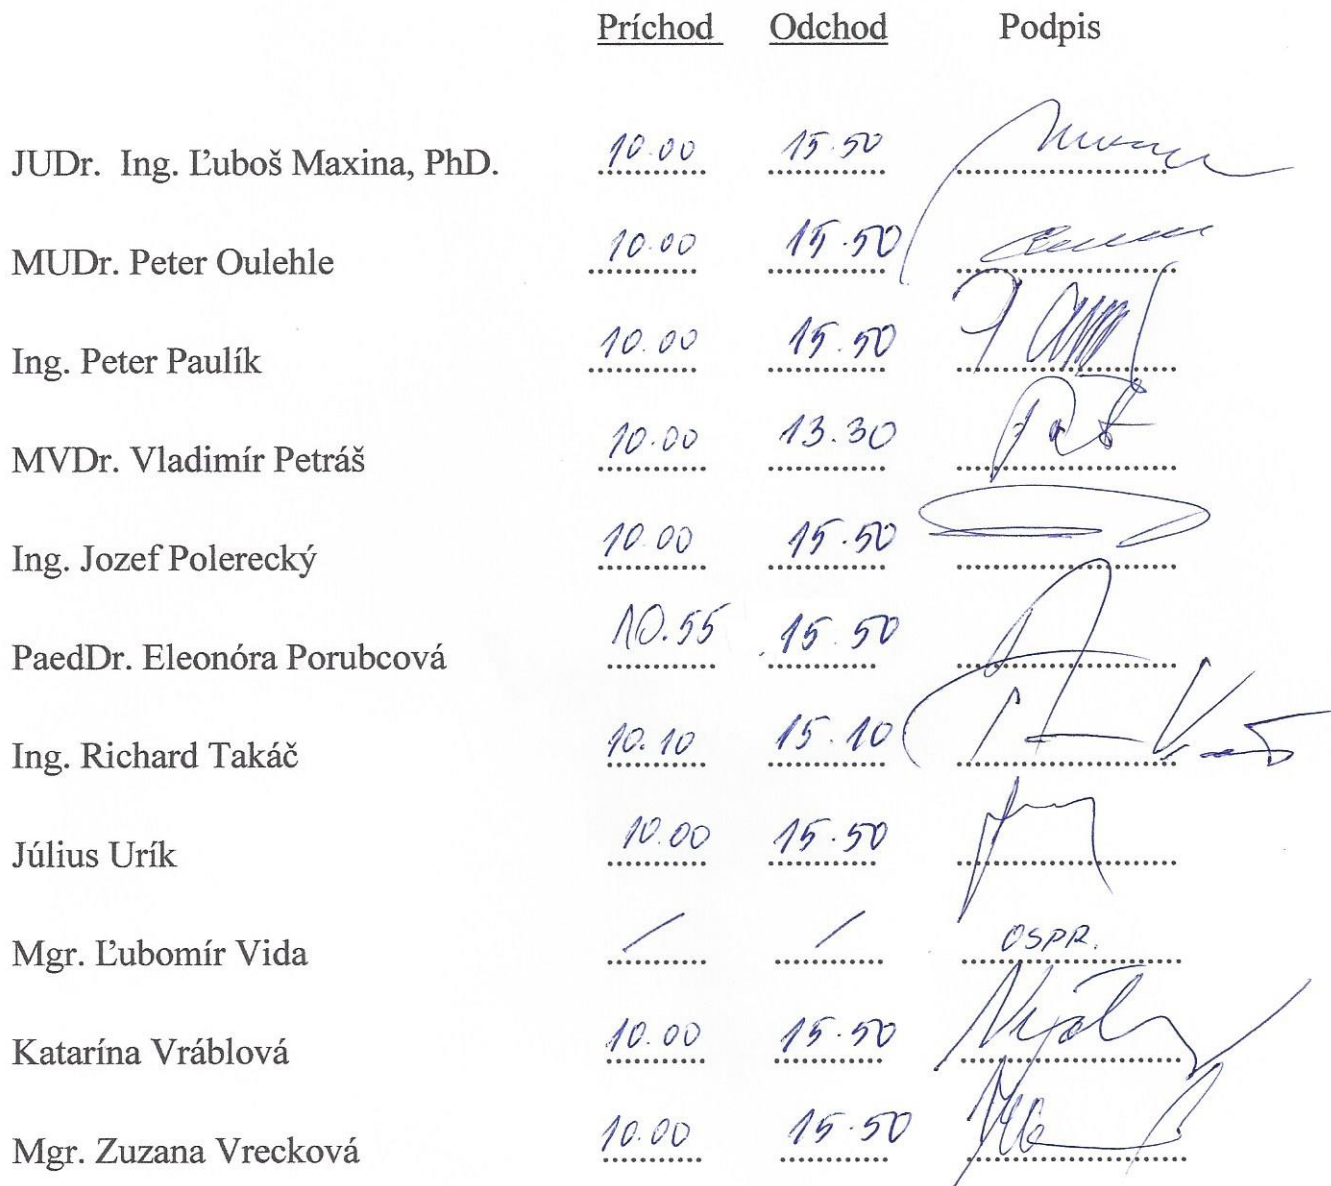 Príchod Odchod Podpis
JUDr. Ing. Ľuboš Maxina, PhD. 10.00 15.50
MUDr. Peter Oulehle 10.00 15.50
Ing. Peter Paulík 10.00 15.50
MVDr. Vladimír Petráš 10.00 13.30
Ing. Jozef Polerecký 10.00 15.50
PaedDr. Eleonóra Porubcová 10.55 15.50
Ing. Richard Takáč 10.10 15.10
Július Urík 10.00 15.50
Mgr. Ľubomír Vida / / OSPR.
Katarína Vráblová 10.00 15.50
Mgr. Zuzana Vrecková 10.00 15.50